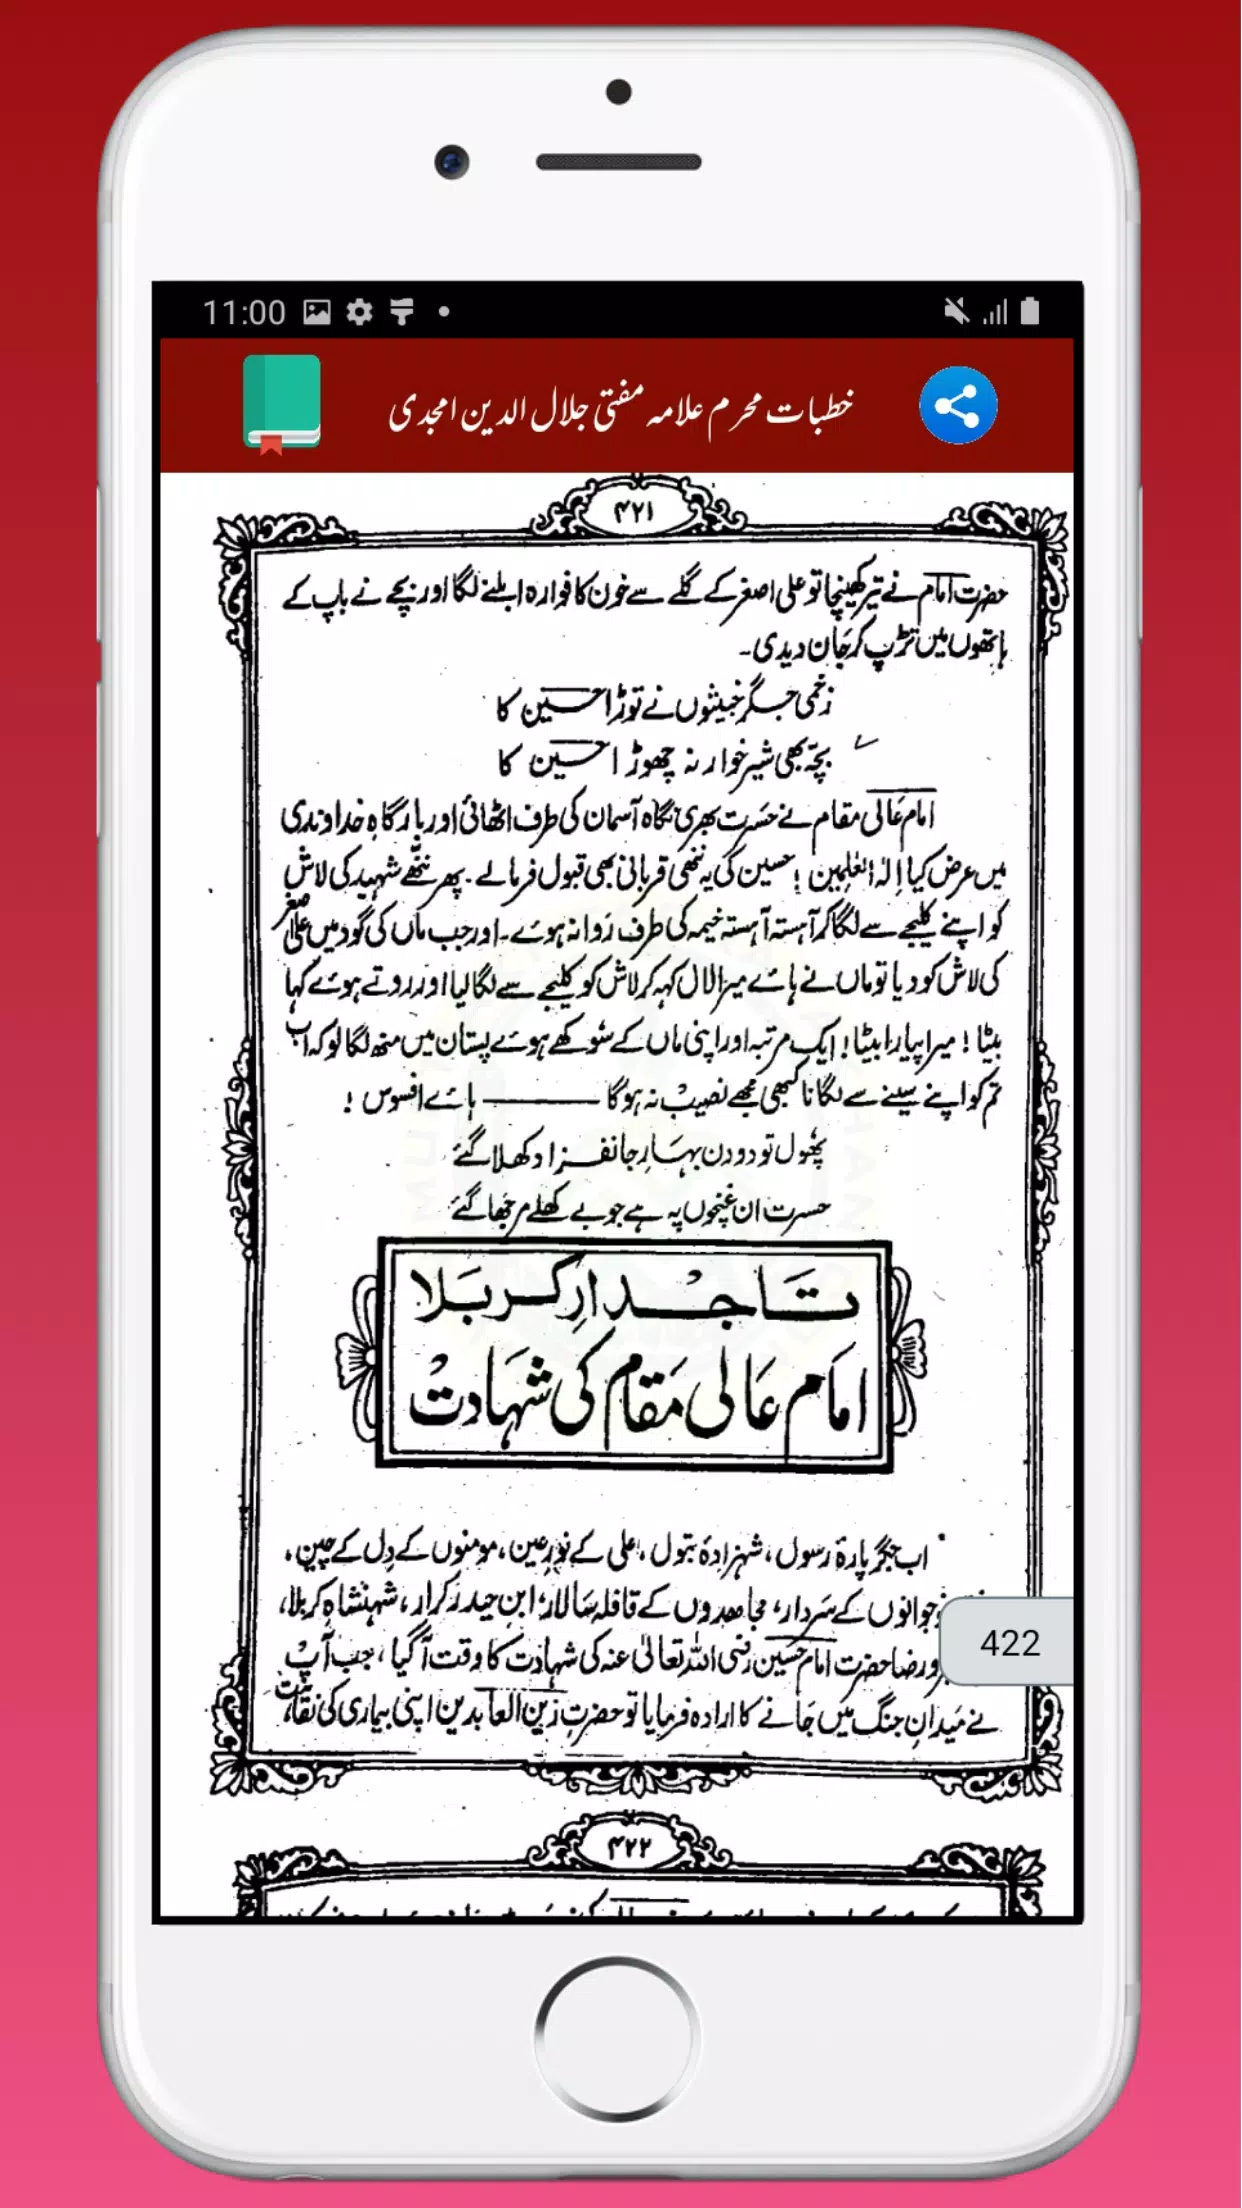 11:00
خطبات محرم علامہ مفتی جلال الدین امجدی
۴۲۱
حضرت امام نے تیر کھینچا تو علی اصغر کے گلے سے خون کا فوارہ ابلنے لگا اور بچے نے باپ کے
ہاتھوں میں تڑپ کر جان دیدی۔
زخمی جگر خبیثوں نے توڑا حسین کا
بچّہ بھی شیر خوار نہ چھوڑا حسین کا
امام عالی مقام نے حسرت بھری نگاہ آسمان کی طرف اٹھائی اور بارگاہِ خداوندی
میں عرض کیا اِلٰہ العٰلمین! حسین کی یہ ننھی قربانی بھی قبول فرمالے۔ پھر ننھّے شہید کی لاش
کو اپنے کلیجے سے لگا کر آہستہ آہستہ خیمہ کی طرف روانہ ہوئے۔ اور جب ماں کی گود میں علی اصغر
کی لاش کو دیا تو ماں نے ہائے میرا لال کہہ کر لاش کو کلیجے سے لگا لیا اور روتے ہوئے کہا
بیٹا! میرا پیارا بیٹا! ایک مرتبہ اور اپنی ماں کے سُوکھے ہوئے پستان میں منھ لگا لو کہ اب
تم کو اپنے سینے سے لگانا کبھی مجھے نصیب نہ ہوگا ——— ہائے افسوس!
پھُول تو دو دن بہارِ جانفزا دکھلا گئے
حسرت ان غنچوں پہ ہے جو بے کھلے مرجھا گئے
تاجدارِ کربلا
امام عالی مقام کی شہادت
اب جگر پارۂ رسول، شہزادۂ بتول، علی کے نورِ عین، مومنوں کے دِل کے چین،
نوجوانوں کے سَردار، مجاھدوں کے قافلہ سالار، ابنِ حیدر کرار، شہنشاہِ کربلا،
و رضا حضرت امام حسین رضی اللہ تعالیٰ عنہ کی شہادت کا وقت آگیا، جب آپ
نے میدانِ جنگ میں جانے کا ارادہ فرمایا تو حضرتِ زین العابدین اپنی بیماری کی نقاہت
422
۴۲۲